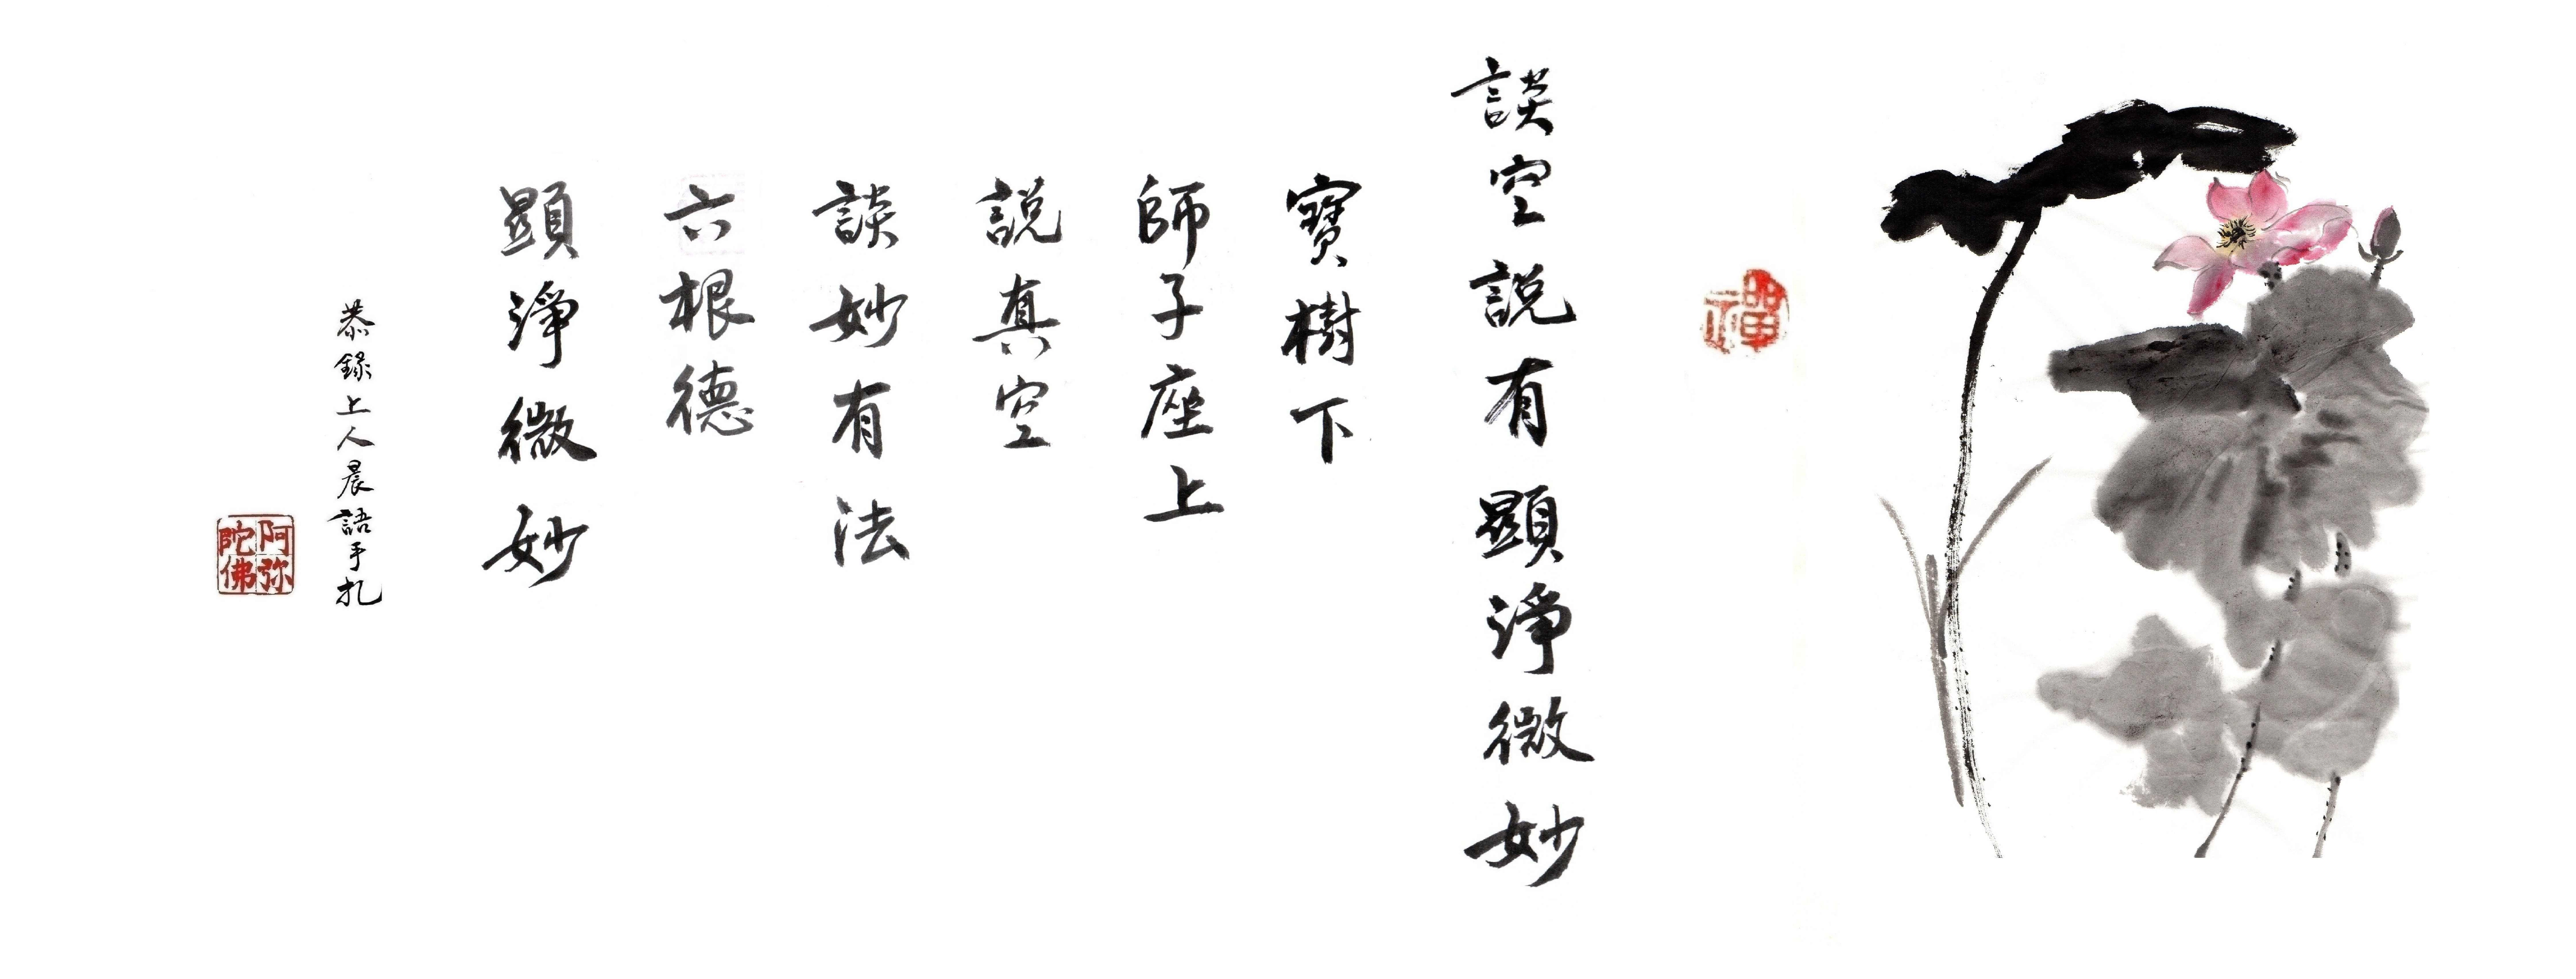 禪
談空說有顯淨微妙
寶樹下
師子座上
說真空
談妙有法
六根德
顯淨微妙
恭錄上人晨語手札
阿弥
陀佛